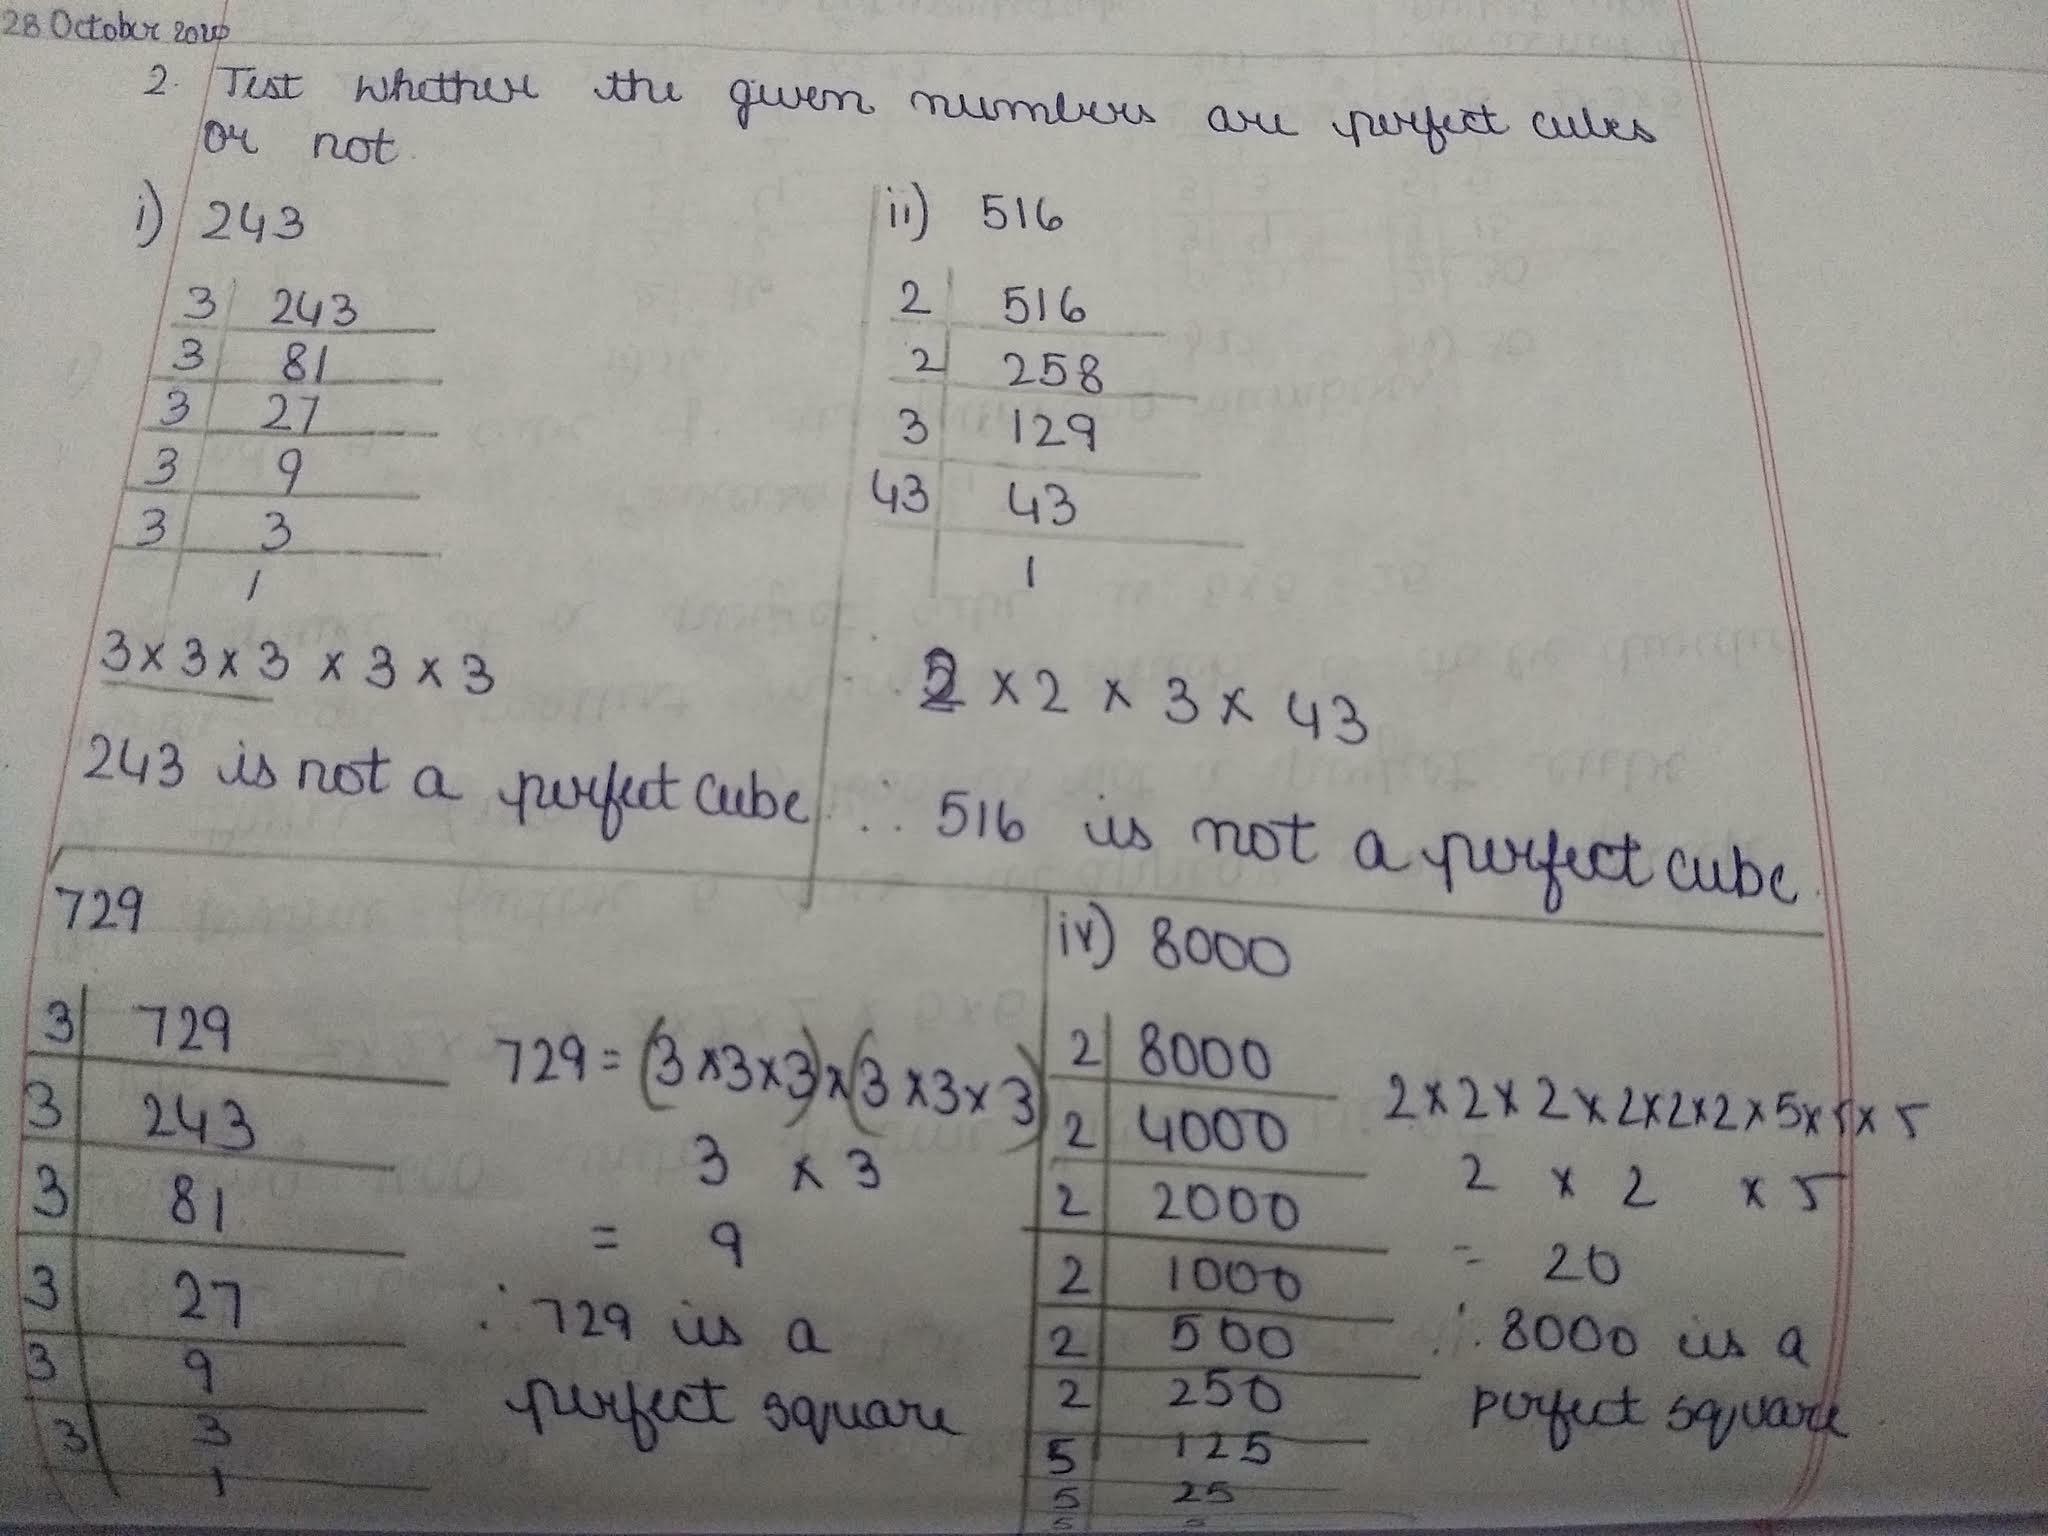 28 October 2020
2. Test whether the given numbers are perfect cubes
or not.
i) 243
3 | 243
3 | 81
3 | 27
3 | 9
3 | 3
1
3 x 3 x 3 x 3 x 3
243 is not a perfect cube
ii) 516
2 | 516
2 | 258
3 | 129
43 | 43
1
∴ 2 x 2 x 3 x 43
∴ 516 is not a perfect cube.
729
3 | 729
3 | 243
3 | 81
3 | 27
3 | 9
3 | 3
1
729 = (3 x 3 x 3) x (3 x 3 x 3)
3 x 3
= 9
∴ 729 is a
perfect square
iv) 8000
2 | 8000
2 | 4000
2 | 2000
2 | 1000
2 | 500
2 | 250
5 | 125
5 | 25
5 | 5
2 x 2 x 2 x 2 x 2 x 2 x 5 x 5 x 5
2 x 2 x 5
= 20
∴ 8000 is a
perfect square.